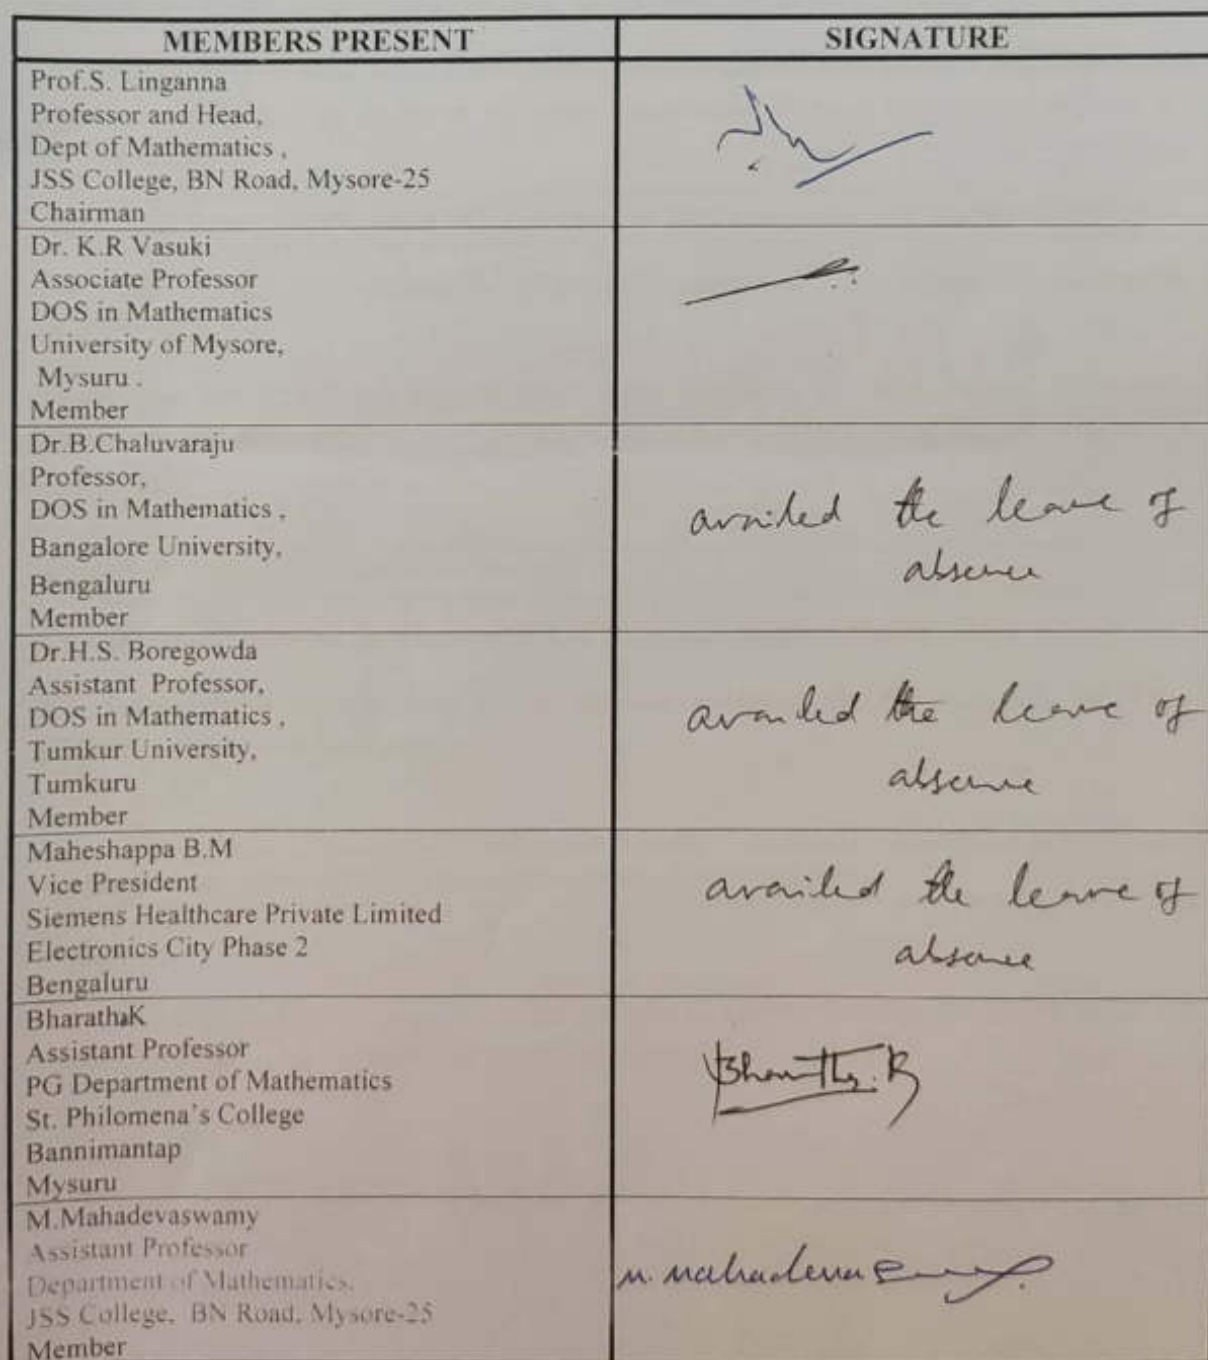 MEMBERS PRESENT
SIGNATURE
Prof.S. Linganna
Professor and Head,
Dept of Mathematics ,
JSS College, BN Road, Mysore-25
Chairman
Dr. K.R Vasuki
Associate Professor
DOS in Mathematics
University of Mysore,
Mysuru .
Member
Dr.B.Chaluvaraju
Professor,
DOS in Mathematics ,
Bangalore University,
Bengaluru
Member
availed the leave of
absence
Dr.H.S. Boregowda
Assistant Professor,
DOS in Mathematics ,
Tumkur University,
Tumkuru
Member
availed the leave of
absence
Maheshappa B.M
Vice President
Siemens Healthcare Private Limited
Electronics City Phase 2
Bengaluru
availed the leave of
absence
BharathaK
Assistant Professor
PG Department of Mathematics
St. Philomena's College
Bannimantap
Mysuru
M.Mahadevaswamy
Assistant Professor
Department of Mathematics,
JSS College, BN Road, Mysore-25
Member